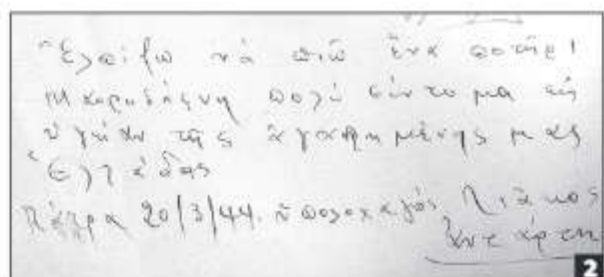 Ἐλπίζω νὰ πιῶ ἕνα ποτήρι
Μαυροδάφνη πολὺ σύντομα εἰς
ὑγείαν τῆς ἀγαπημένης μας
Ἑλλάδας
Πάτρα 20/3/44. ὑπολοχαγός
2